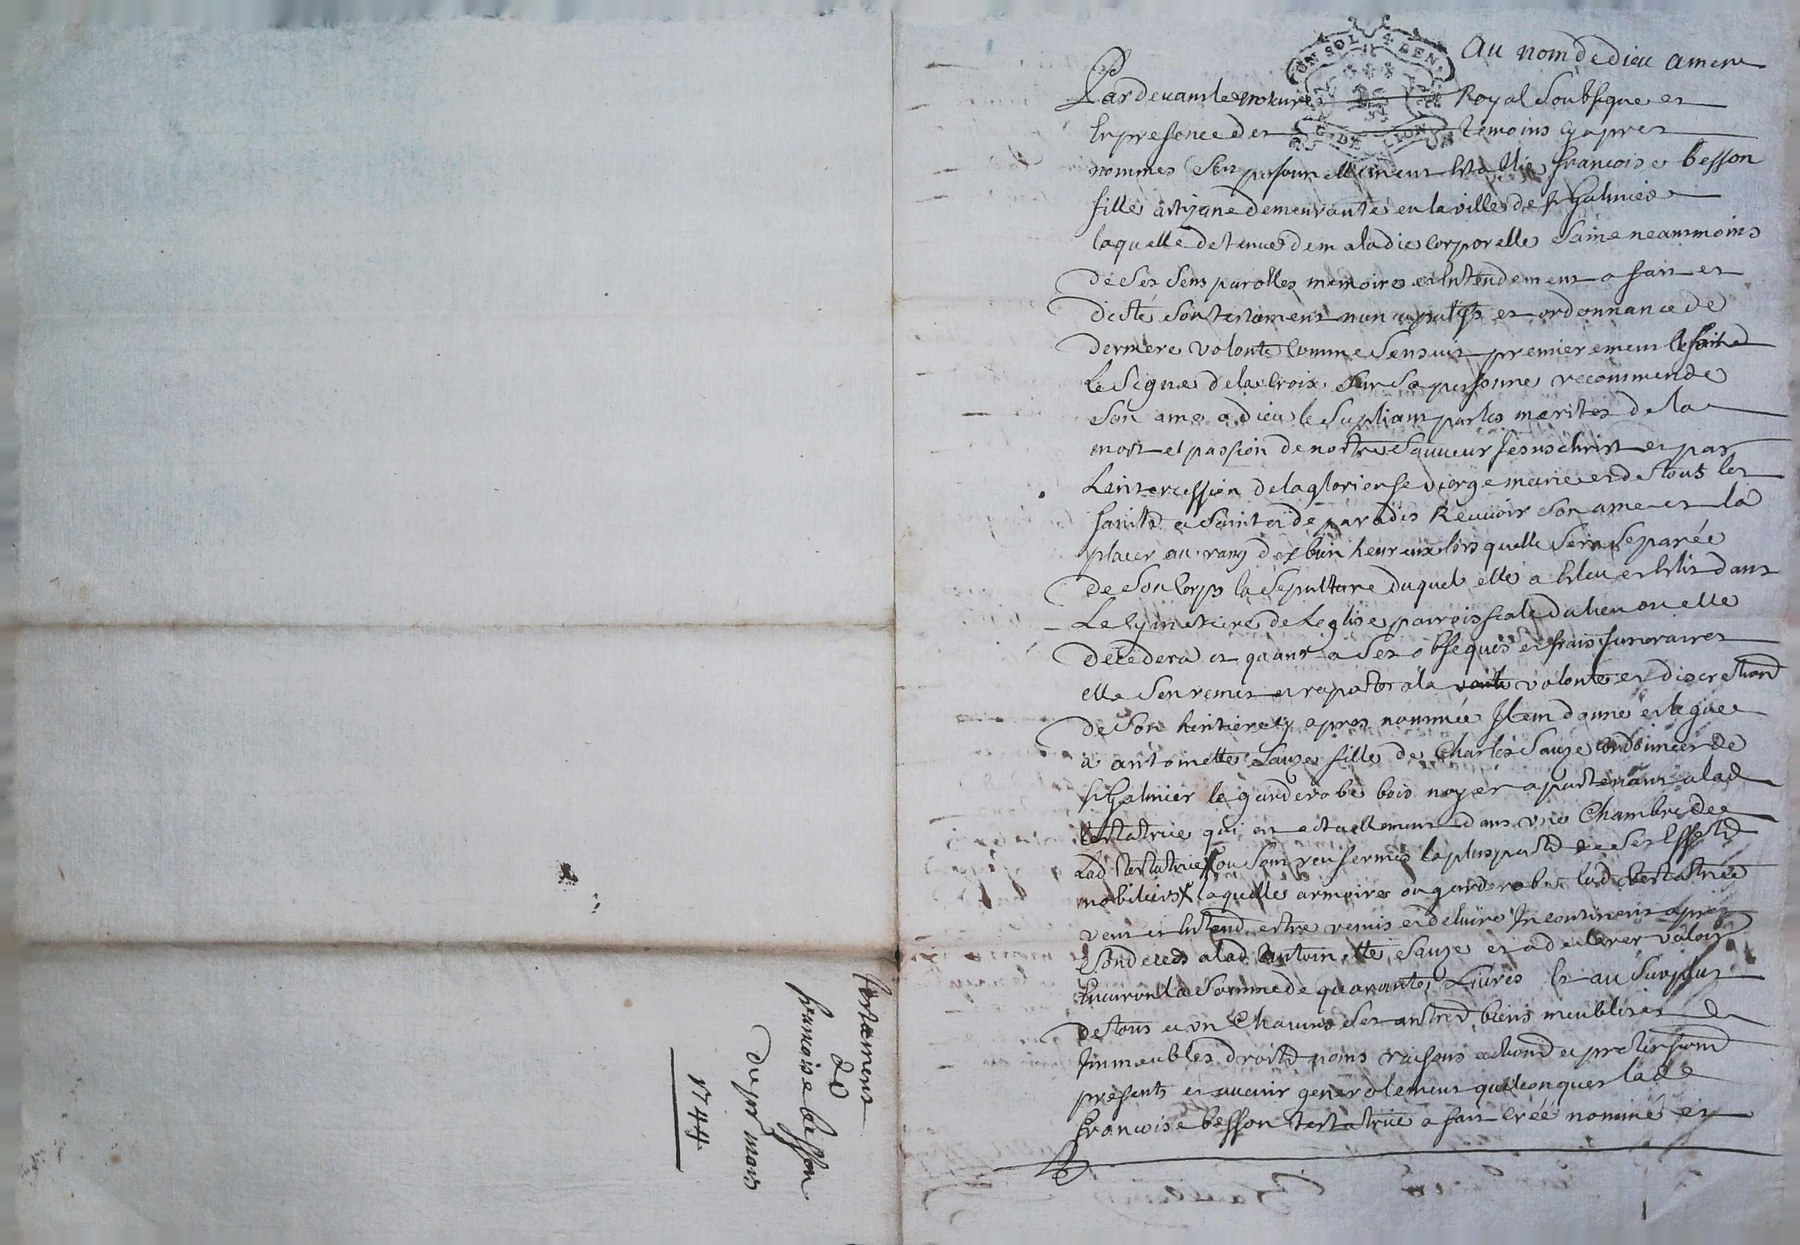 Testament
de
francoise besson
du pr mars
1744
UN SOL 4 DEN.
G. DE LION
Au nom de dieu amen
Pardevant le notaire Royal Soubsigne et
En presence des temoins cy apres
nommes Est personnellement Establie francoise besson
fille artizane demeurante en la ville de st Galmier
laquelle detenue de maladie corporelle Saine neanmoins
de Ses Sens parolles memoire et Entendement a fait et
dicté Son testament nuncupatif et ordonnance de
derniere volonte comme Sensuit premierement
le Signe de la Croix Sur Sa personne recommende
Son ame a dieu le Supliant par les merites de la
mort et passion de nostre Sauveur Jesus christ et par
Lintercession de la glorieuse vierge marie et de tous les
saints et saintes de paradis Recevoir Son ame et la
placer au rang des bien heureux lors quelle Sera Separée
de Son Corps la Sepulture duquel elle a Eleu et Elit dans
Le Cymetiere de Leglise parroissiale du lieu ou elle
decedera et quant a Ses obseques et frais funeraires
elle Sen remet et raporte a la volonte et discretion
de Son heritiere cy apres nommée Item donne et legue
a antoinette Sauze fille de Charles Sauze cordonnier de
st Galmier le garderobe bois noyer apartenant a lad
testatrice qui est actuellement dans une Chambre de
Lad testatrice ou Sont renfermés la pluspart de Ses Effets
mobiliers laquelle armoire ou garderobe lad testatrice
veut et Entend estre remis et delivré Incontinent apres
Son deceds a lad antoinette Sauze et a declarer valoir
Environ la Somme de quarante Livres Et au Surplus
de tous et un Chacuns Ses autres biens meubles et
Immeubles droits noms raisons actions et pretentions
presents et avenir generalement quelconques lade
francoise besson testatrice a fait créé nommé et